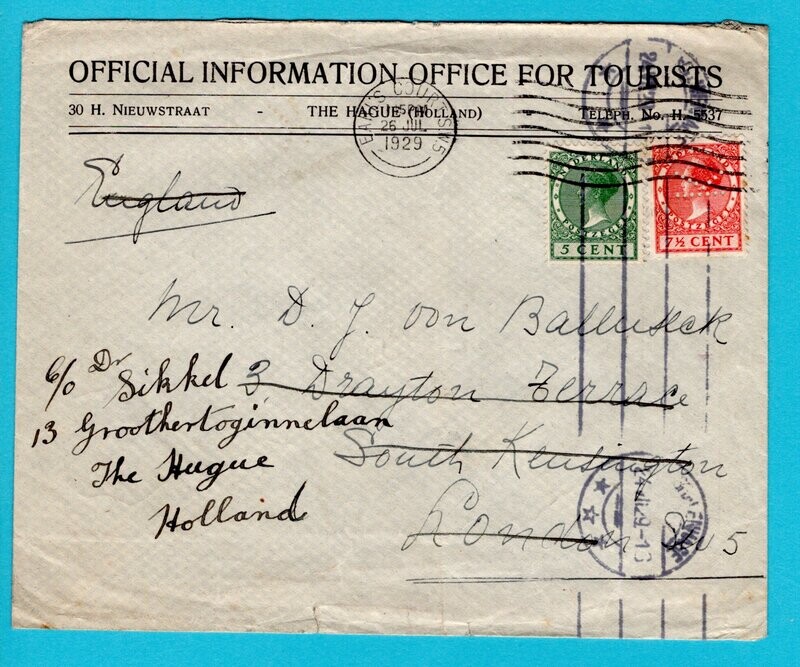 OFFICIAL INFORMATION OFFICE FOR TOURISTS
30 H. NIEUWSTRAAT - THE HAGUE (HOLLAND) - TELEPH. No. H. 5537
EARLS COURT S.W.5
26 JUL
1929
England
NEDERLAND
POSTZEGEL
5 CENT
POSTZEGEL
7½ CENT
Mr. D. J. von Balluseck
c/o Dr Sikkel
3 Drayton Terrace
13 Groothertoginnelaan
South Kensington
The Hague
Holland
London SW 5